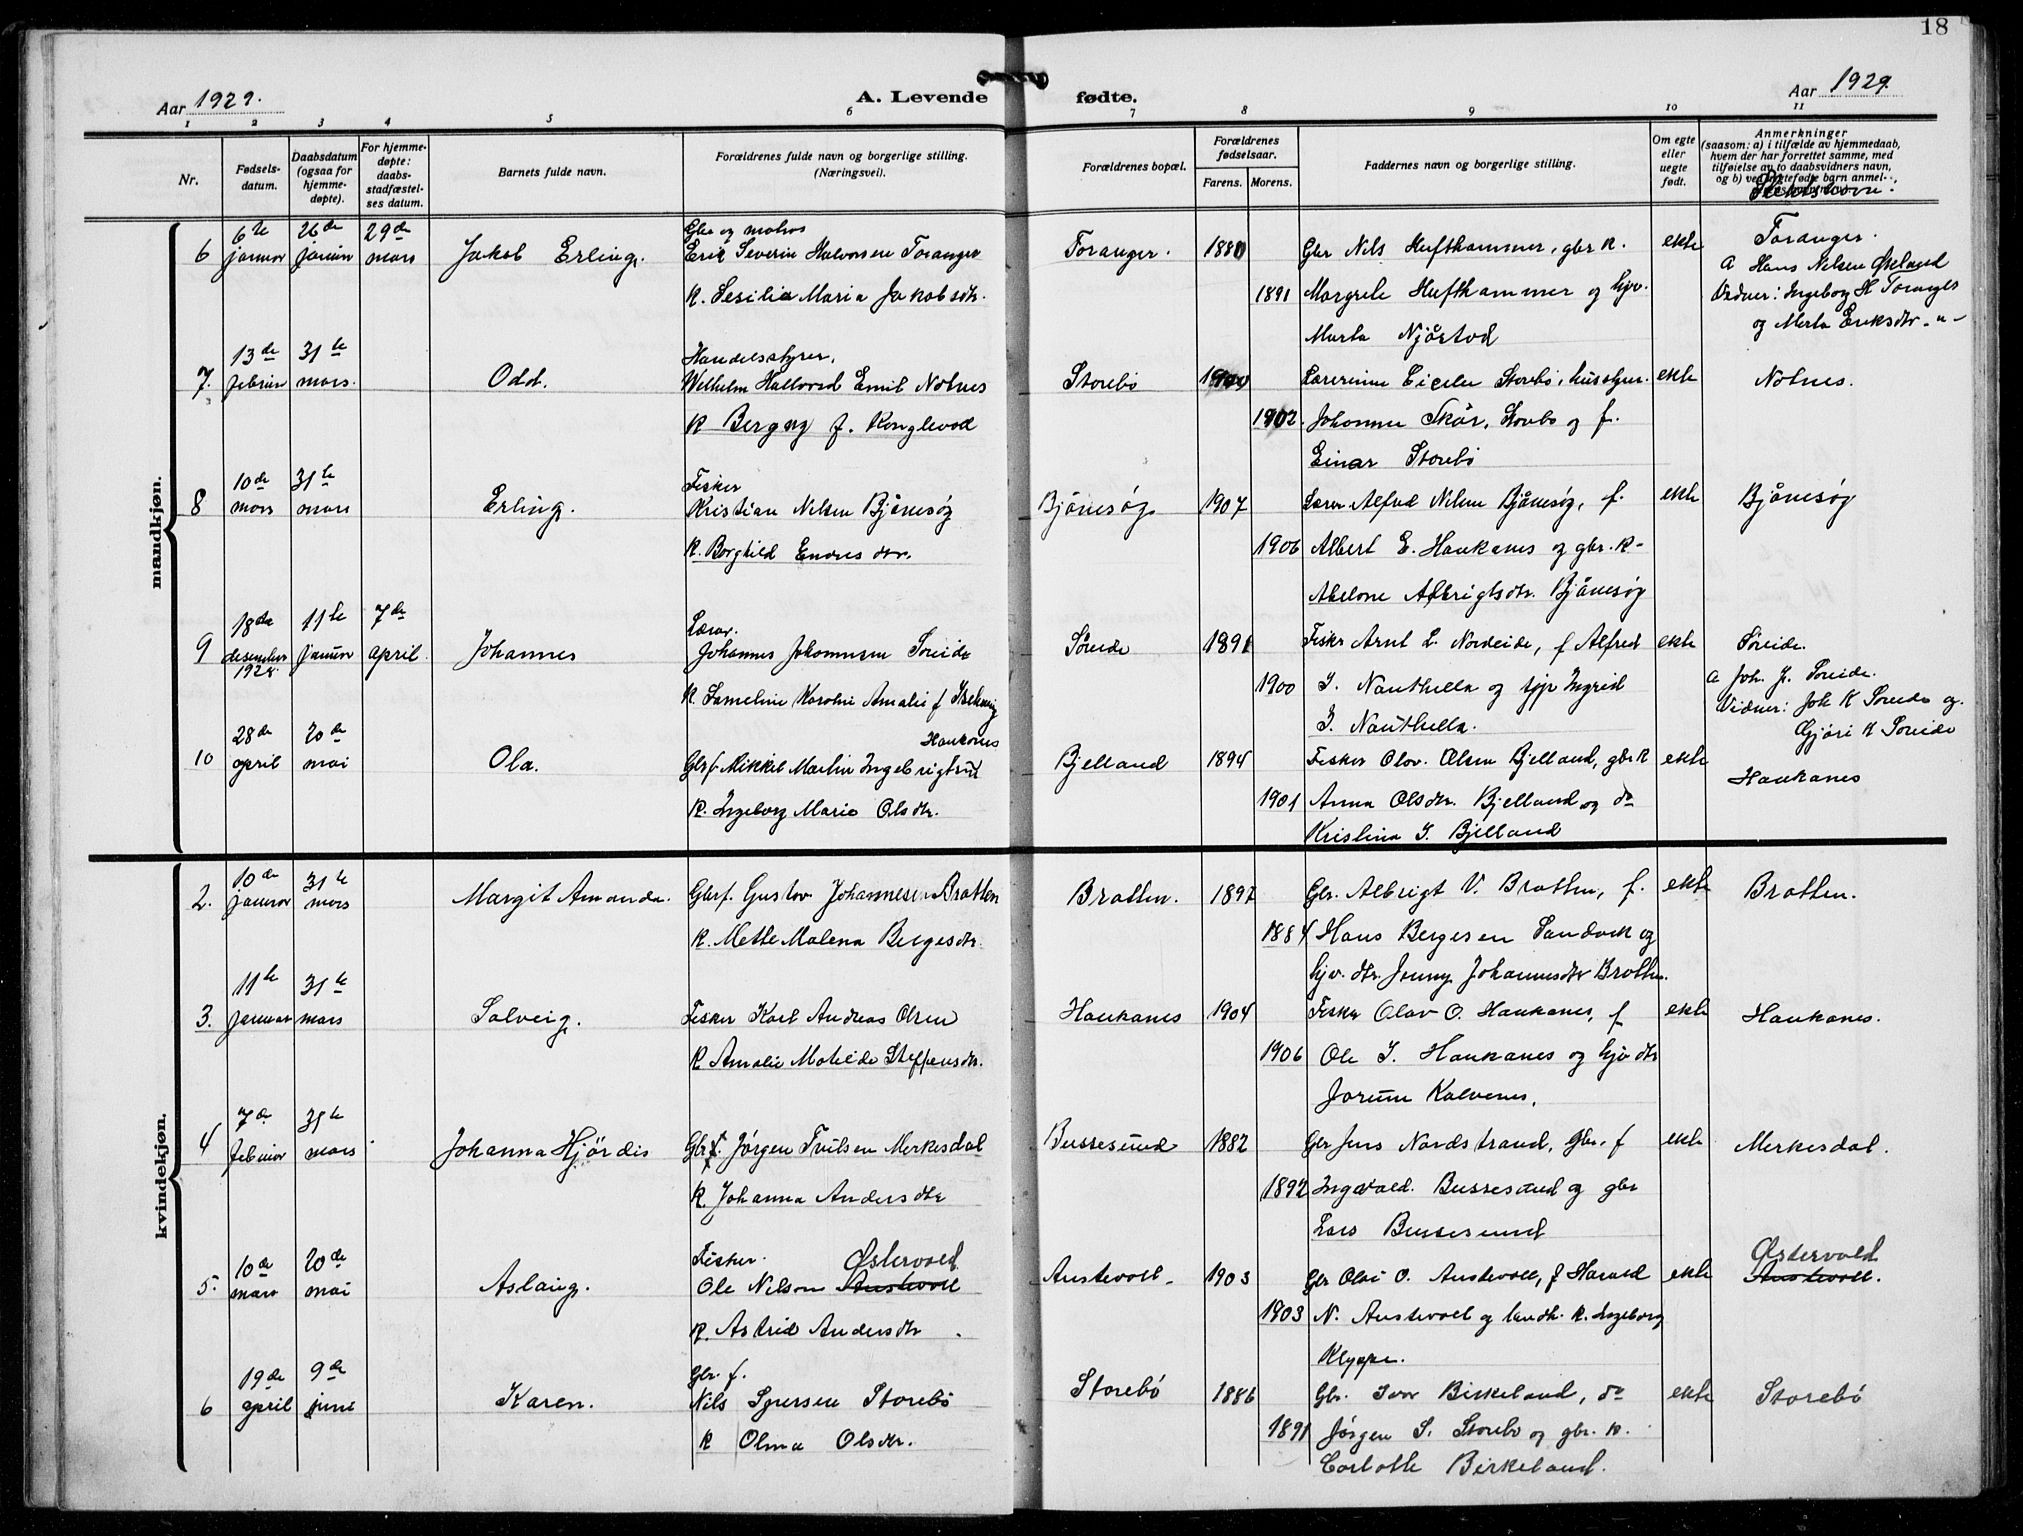 18
Aar 1929.
A. Levende fødte.
Aar 1929.
1 2 3 4 5 6 7 8 9 10 11
Nr.
Fødsels-
datum.
Daabsdatum
(ogsaa for
hjemme-
døpte).
For hjemme-
døpte:
daabs-
stadfæstel-
ses datum.
Barnets fulde navn.
Forældrenes fulde navn og borgerlige stilling.
(Næringsvei).
Forældrenes bopæl.
Forældrenes
fødselsaar.
Farens. Morens.
Faddernes navn og borgerlige stilling.
Om egte
eller
uegte
født.
Anmerkninger
(saasom: a) i tilfælde av hjemmedaab,
hvem der har forrettet samme, med
tilføielse av to daabsvidners navn,
og b) ved uegtefødte barn anmel-
mandkjøn.
6te 26de 29de
6 januar januar mars
Jakob Erling.
Gbr og matros
Erik Severin Halvorsen Toranger
K. Sesilia Maria Jakobsdtr.
Toranger. 1880
1891
Gbr Nils Hufthammer, gbr k.
Margrete Hufthammer og hjv.
Marta Njåstad
ekte
Toranger.
a Hans Nilsen Økland
Vidner: Ingeborg H Toranger
og Marta Eriksdtr. -"-
13de 31te
7. februar mars.
Odd.
Handelsstyrer.
Wilhelm Hallvard Emil Notnes
K Bergny f. Konglevod
Storebö
1902.
Lærerinne Cicilie Storebö, husstyrer.
Johanne Skår, Storebø og f.
Einar Storebö
ekte
Notnes.
10de 31te
8 mars mars
Erling.
Fisker
Kristian Nilsen Bjånesøy
K. Borghild Endresdtr.
Bjånesøy 1907
1906
Lærer Alfred Nilsen Bjånesøy, f.
Albert E. Haukanes og gbr. k-
Abelone Albrigtsdtr. Bjånesøy
ekte
Bjånesøy
18de 11te 7de
9 desember januar april.
1928.
Johannes
Lærer.
Johannes Johannesen Søreide
K. Lameline Karoline Amalie f
Søreide 1891
1900
Fisker Arnt L. Nordeide, f Alfred
I. Nauthella og tjp Ingrid
I. Nauthella.
ekte
Søreide.
a Joh. J. Søreide.
Vidner: Joh K Søreide og
Gjøri K Søreide
28de 20de
10 april mai
Ola.
Haukanes
Gbrf Mikkel Martin Ingebrigtsen
K. Ingeborg Marie Olsdtr.
Bjelland 1894
1901
Fisker Olav. Olsen Bjelland, gbr k
Anna Olsdtr. Bjelland og do
Kristina I. Bjelland
ekte
Haukanes
kvindekjøn.
10de 31te
2. januar mars
Margit Amanda.
Gbrf. Gustav Johannesen Bratten
K. Mette Malena Bergesdtr.
Bratten. 1897
1884
Gbr. Albrigt V. Bratten, f.
Hans Bergesen Sandvik og
hjv. dtr. Jenny Johannesdtr Bratten.
ekte
Bratten.
11te 31te
3. januar mars
Solveig.
Fisker Karl Andreas Olsen
K Amalie Matilde Steffensdtr.
Haukanes 1904
1906
Fisker Olav O. Haukanes, f
Ole I. Haukanes og hjv dtr
Jorunn Kalvenes.
ekte
Haukanes.
7de 31te
4 februar mars
Johanna Hjördis
Gbrf. Jørgen Trulsen Merkesdal
K. Johanna Andersdtr
Bussesund 1882
1892
Gbr Jens Nordstrand, gbr. f
Ingvald. Bussesund og gbr
Lars Bussesund
ekte
Merkesdal.
10de 20de
5. mars mai
Aslaug.
Fisker. Østervold
Ole Nilsen Austevoll
K. Astrid Andersdtr.
Austevoll 1903
1903
Gbr Olai O. Austevoll, f Harald
N. Austevoll og landh. k. Ingeborg
Klyppe.
ekte
Østervold
Austevoll.
19de 9de
6 april juni
Karen.
Gbr. f.
Nils Sjursen Storebö
K Olma Olsdtr.
Storebö 1886
1891
Gbr. Ivar Birkeland, do
Jørgen S. Storebö og gbr. k.
Carlotte Birkeland.
ekte
Storebö